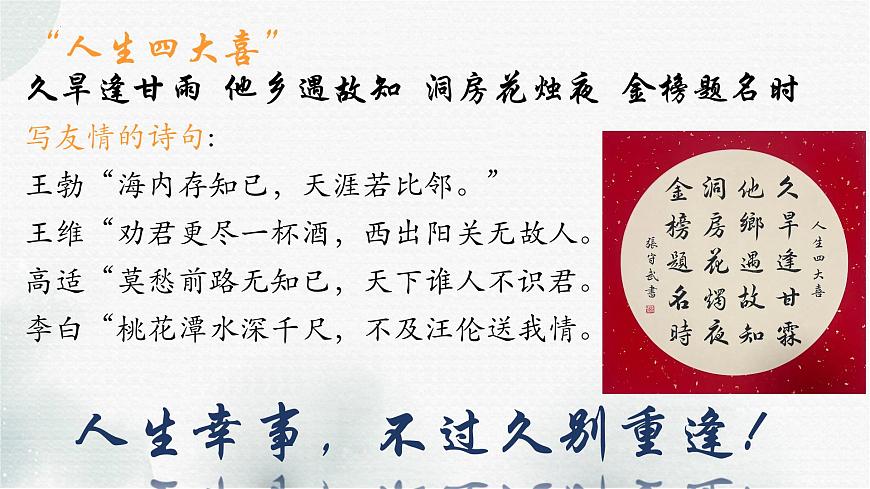 “人生四大喜”
久旱逢甘雨 他乡遇故知 洞房花烛夜 金榜题名时
写友情的诗句：
王勃“海内存知己，天涯若比邻。”
王维“劝君更尽一杯酒，西出阳关无故人。
高适“莫愁前路无知己，天下谁人不识君。
李白“桃花潭水深千尺，不及汪伦送我情。
人生四大喜
久旱逢甘霖
他鄉遇故知
洞房花燭夜
金榜題名時
張守武書
人生幸事，不过久别重逢！